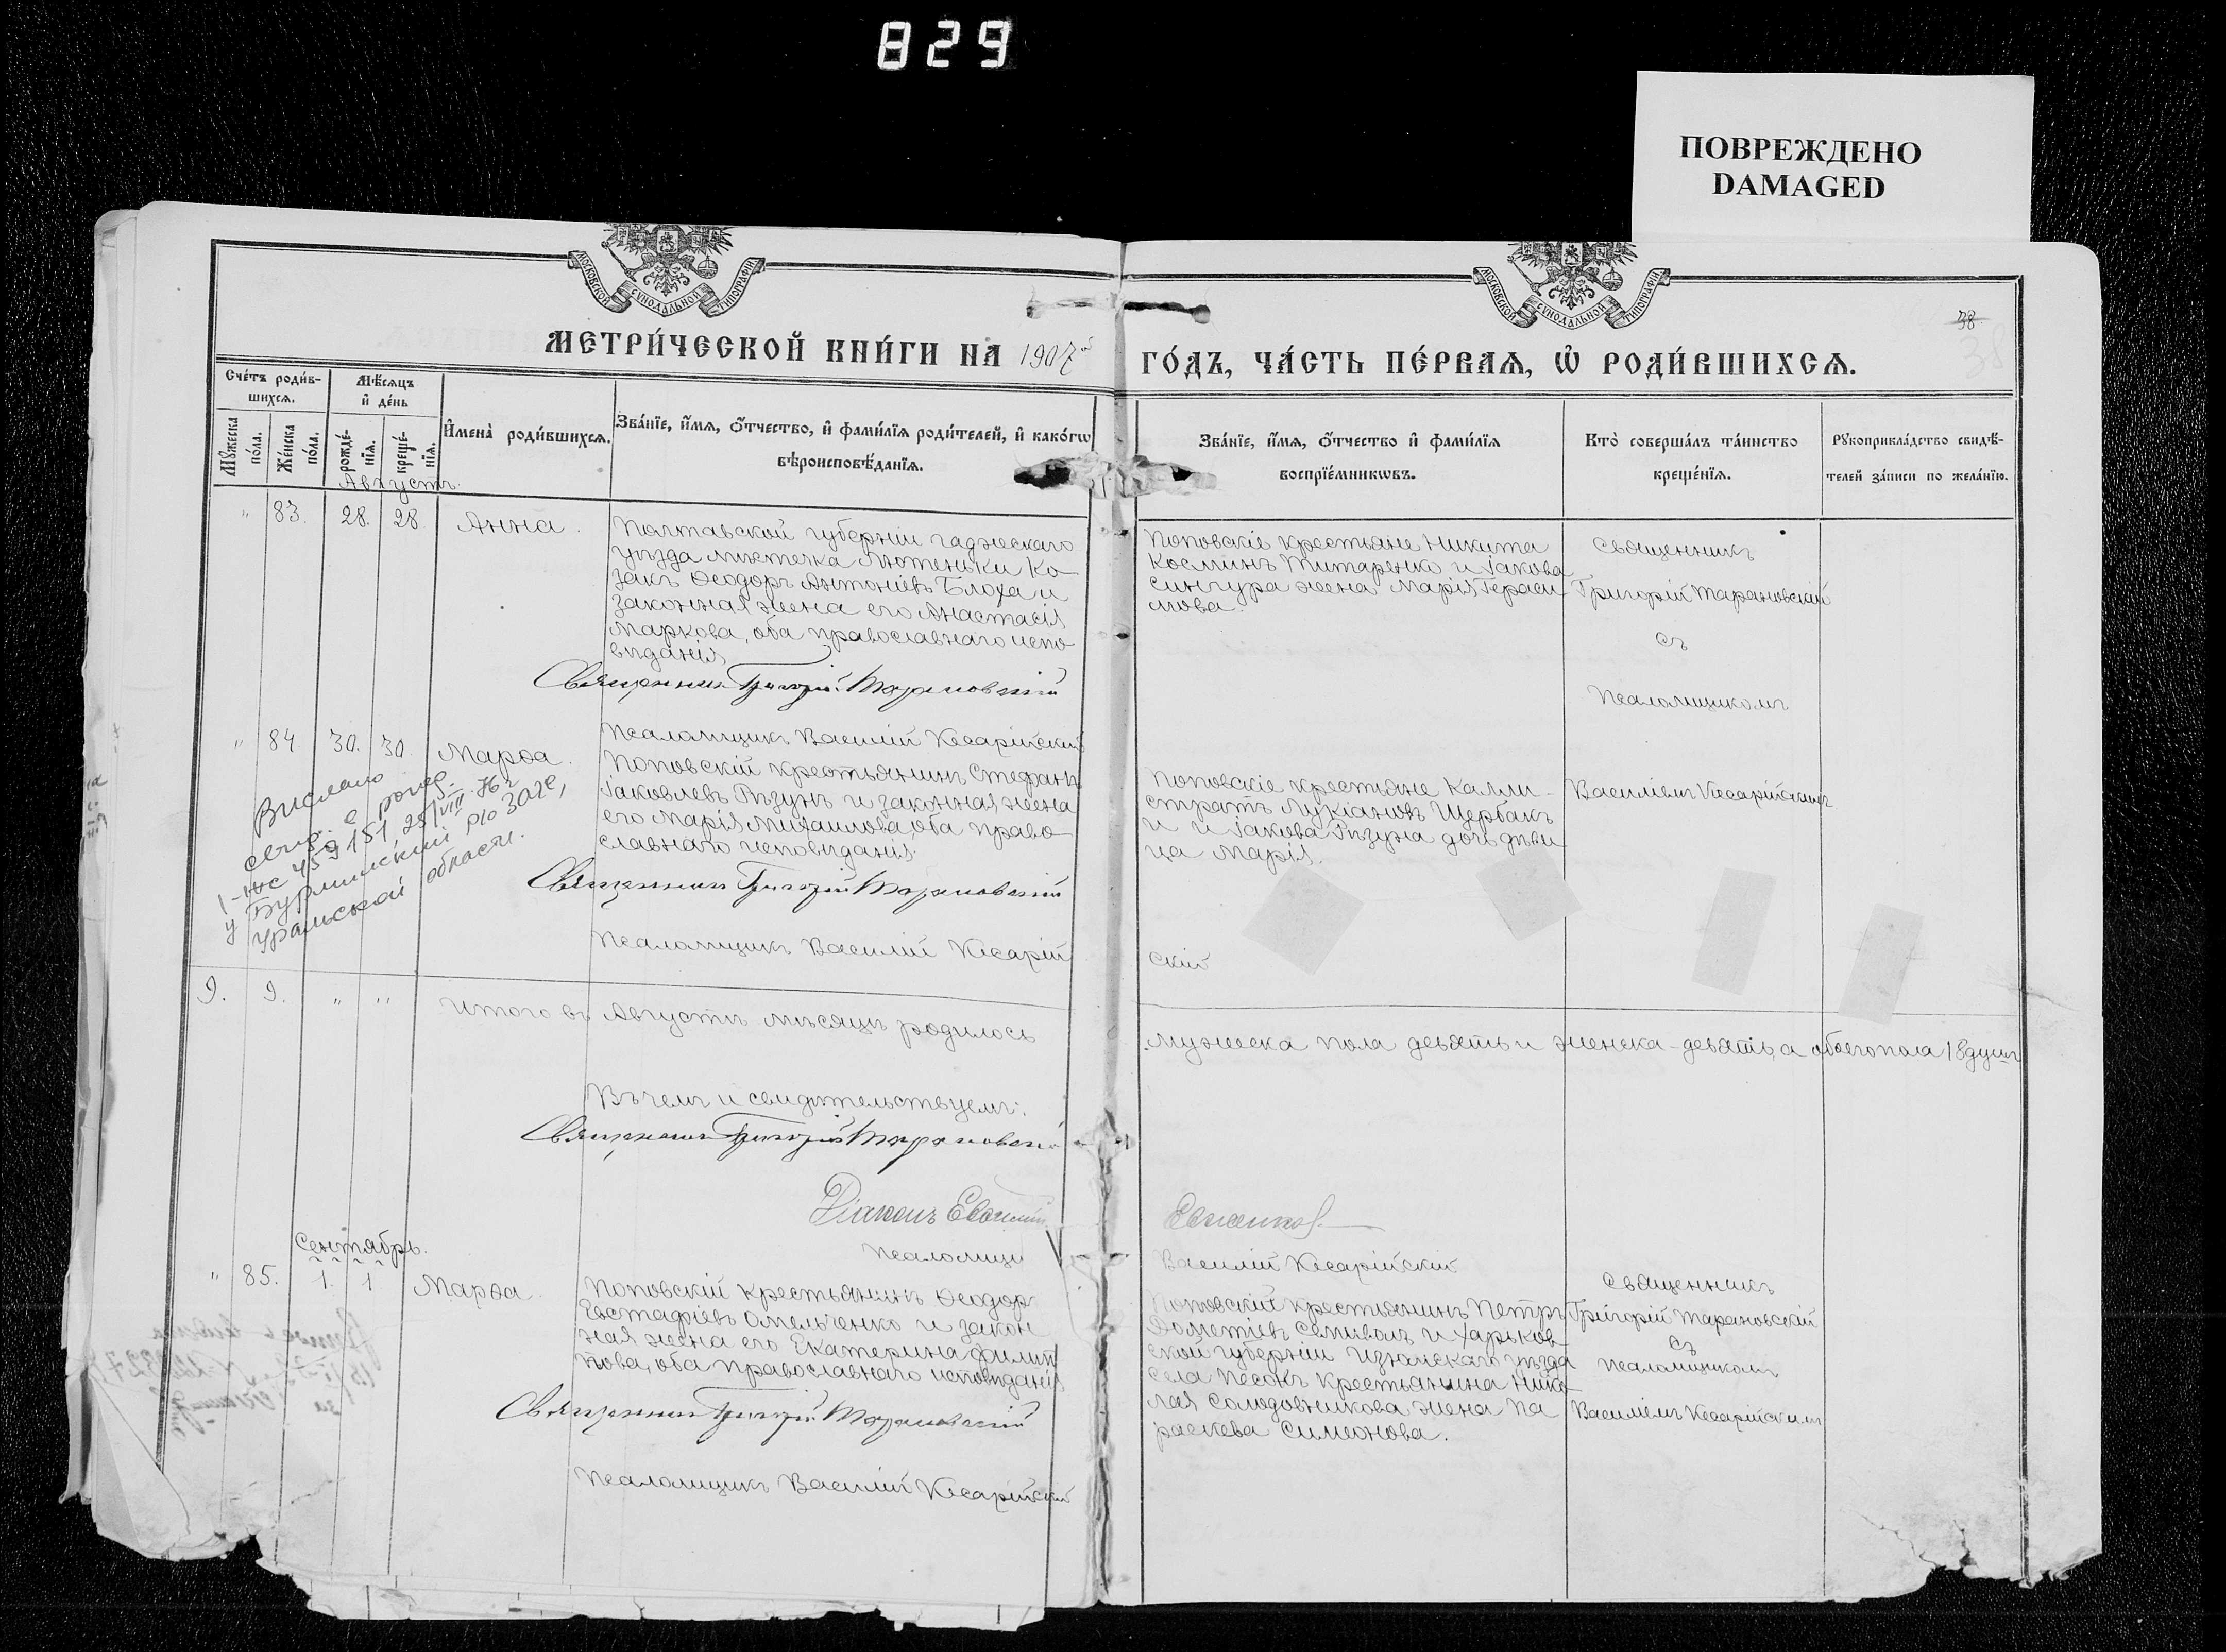 829
ПОВРЕЖДЕНО
DAMAGED
МОСКОВСКОЙ СѴНОДАЛЬНОЙ ТИПОГРАФІИ
МОСКОВСКОЙ СѴНОДАЛЬНОЙ ТИПОГРАФІИ
38.
МЕТРИ́ЧЕСКОЙ КНИ́ГИ НА 1907й ГО́ДЪ, ЧА́СТЬ ПЕ́РВАЯ, Ѡ РОДИ́ВШИХСЯ.
Сче́тъ роди́в-
шихся.
Му́жеска по́ла.
Же́нска по́ла.
Мѣ́сяцъ
и де́нь
рожде́-
нїя.
креще́-
нїя.
Имена̀ роди́вшихся.
Зва́нїе, и́мя, о́тчество, и фами́лїя роди́телей, и како́гѡ
вѣроисповѣ́данїя.
Зва́нїе, и́мя, о́тчество и фами́лїя
воспрїе́мникѡвъ.
Кто̀ соверша́лъ та́инство
креще́нїя.
Рукоприкла́дство свидѣ́-
телей за́писи по жела́нїю.
Августъ.
" 83. 28. 28. Анна.
Полтавской губерніи гадячскаго
уѣзда мѣстечка Лютеньки Ко-
закъ Ѳеодоръ Антоніевъ Блоха и
законная жена его Анастасія
Маркова, оба православнаго испо-
вѣданія
Священникъ Григорій Тарановскій
Псаломщикъ Василій Кесарійскій
Поповскіе крестьяне Никита
Косминъ Титаренко и Іакова
Сингура жена Марія Гераси
мова.
Священникъ
Григорій Тарановскій
съ
Псаломщикомъ
Василіемъ Кесарійскимъ
" 84. 30. 30. Марѳа.
Поповскій крестьянинъ Стефанъ
Іаковлевъ Рѣзунъ и законная жена
его Марія Михаилова, оба право-
славнаго исповѣданія.
Священникъ Григорій Тарановскій
Псаломщикъ Василій Кесарій
скій
Поповскіе крестьяне Калли-
стратъ Лукіановъ Щербакъ
и Іакова Рѣзуна дочь дѣви
ца Марія.
Вислано
свид. о рожд.
25/VIII 76 г
у Бурлинский р/о ЗАГС,
Уральской области.
9. 9. " "
Итого въ Августѣ мѣсяцѣ родилось
мужеска пола девять и женска-девять, а обоего пола 18 душъ
Въ чемъ и свидѣтельствуемъ:
Священникъ Григорій Тарановскій
Діаконъ Евѳимій
Псаломщи
Василій Кесарійскій
Сентябрь.
" 85. 1. 1 Марѳа.
Поповскій крестьянинъ Ѳеодоръ
Евстафіевъ Омельченко и закон
ная жена его Екатерина Филип
пова, оба православнаго исповѣданія
Священникъ Григорій Тарановскій
Псаломщикъ Василій Кесарійскій
Поповскій крестьянинъ Петръ
Дометіевъ Семиволъ и Харьков-
ской губерніи Изюмскаго уѣзда
села Песокъ крестьянина Нико-
лая Солодовникова жена Па
раскева Симеонова.
Священникъ
Григорій Тарановскій
съ
Псаломщикомъ
Василіемъ Кесарійскимъ